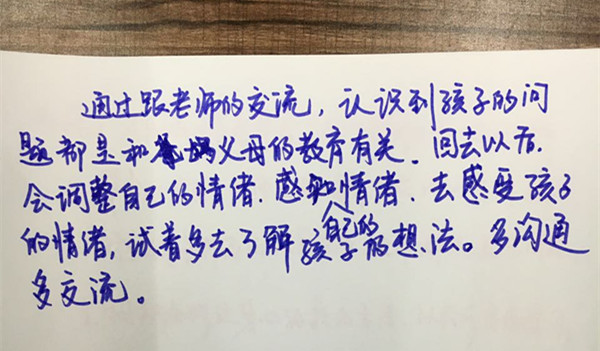 通过跟老师的交流，认识到孩子的问
题都是和父母的教育有关。回去以后，
会调整自己的情绪。感知自己的情绪。去感受孩子
的情绪，试着多去了解孩子的想法。多沟通
多交流。